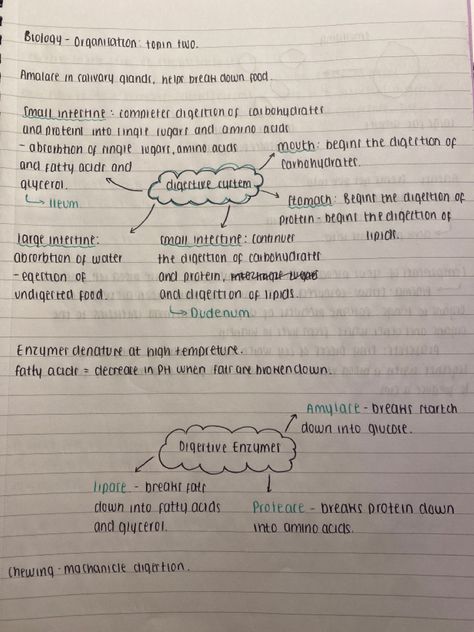 Biology - Organisation: topic two.
Amalase in salivary glands, helps break down food.
small intestine: completes digestion of carbohydrates
and proteins into single sugars and amino acids
- absorbtion of single sugars, amino acids
and fatty acids and
glycerol.
Ileum.
mouth: begins the digestion of
carbohydrates.
digestive system
stomach: Begins the digestion of
protein - begins the digestion of
lipids.
large intestine:
absorbtion of water
- egestion of
undigested food.
small intestine: continues
the digestion of carbohydrates
and protein,
and digestion of lipids.
Dudenum.
Enzymes denature at high tempreture.
fatty acids = decrease in PH when fats are broken down.
Amylase - breaks startch
down into glucose.
Digestive Enzymes
lipase - breaks fats
down into fatty acids
and glycerol.
Protease - breaks protein down
into amino acids.
chewing - machanicle digestion.